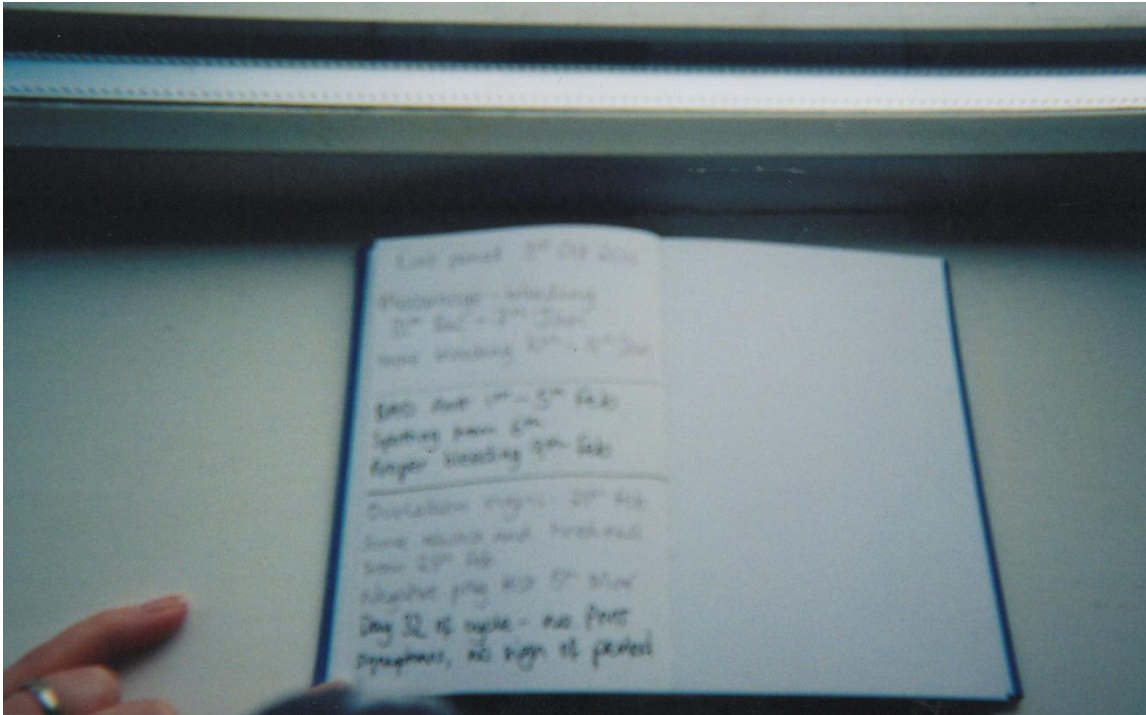 Last period 3rd Oct
Miscarriage - bleeding
Dec - Jan
more bleeding - Jan
BAD PMT 1st - 5th Feb
Spotting from 6th
Proper bleeding 9th Feb
Ovulation signs - Feb
and tiredness
from 25th Feb
Negative preg test 5th Mar
Day 32 of cycle - no PMT
symptoms, no sign of period